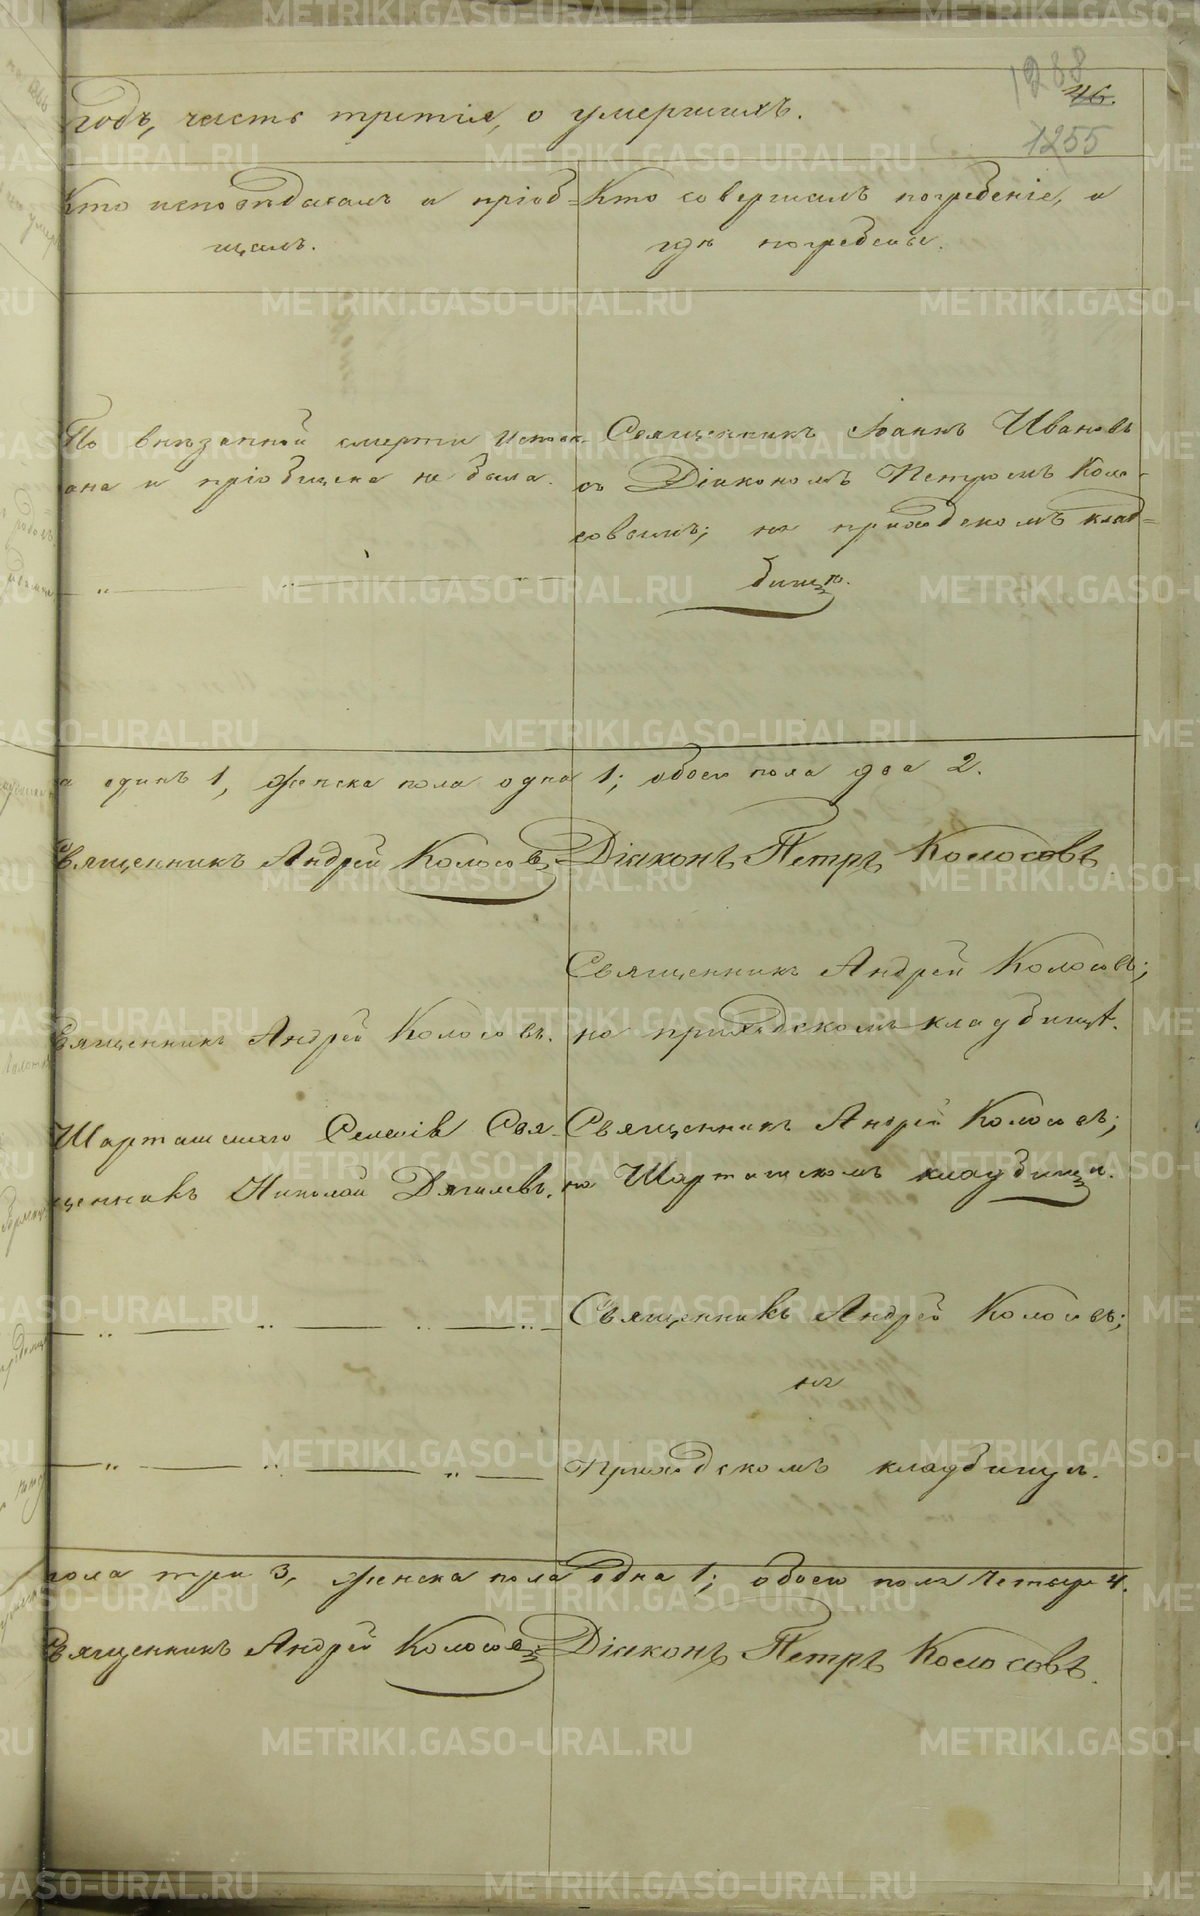 1288
46.
1255
годъ, часть третія, о умершихъ.
Кто исповѣдывалъ и пріоб-
щалъ.
Кто совершалъ погребеніе, и
гдѣ погребены.
По внезапной смерти испов-
ана и пріобщена не была.
Священникъ Іоаннъ Ивановъ
съ Діакономъ Петромъ Коло-
совымъ; на приходскомъ клад-
бищѣ.
а одинъ 1, женска пола одна 1; обоего пола два 2.
Священникъ Андрей Колосовъ
Діаконъ Петръ Колосовъ
Священникъ Андрей Колосовъ.
Священникъ Андрей Колосовъ;
на приходскомъ кладбищѣ.
Шарташскаго Селенія Свя-
щенникъ Николай Дягилевъ.
Священникъ Андрей Колосовъ;
на Шарташскомъ кладбищѣ.
Священникъ Андрей Колосовъ;
на
приходскомъ кладбищѣ.
пола три 3, женска пола одна 1; обоего пола четыре 4.
Священникъ Андрей Колосовъ
Діаконъ Петръ Колосовъ.
METRIKI.GASO-URAL.RU